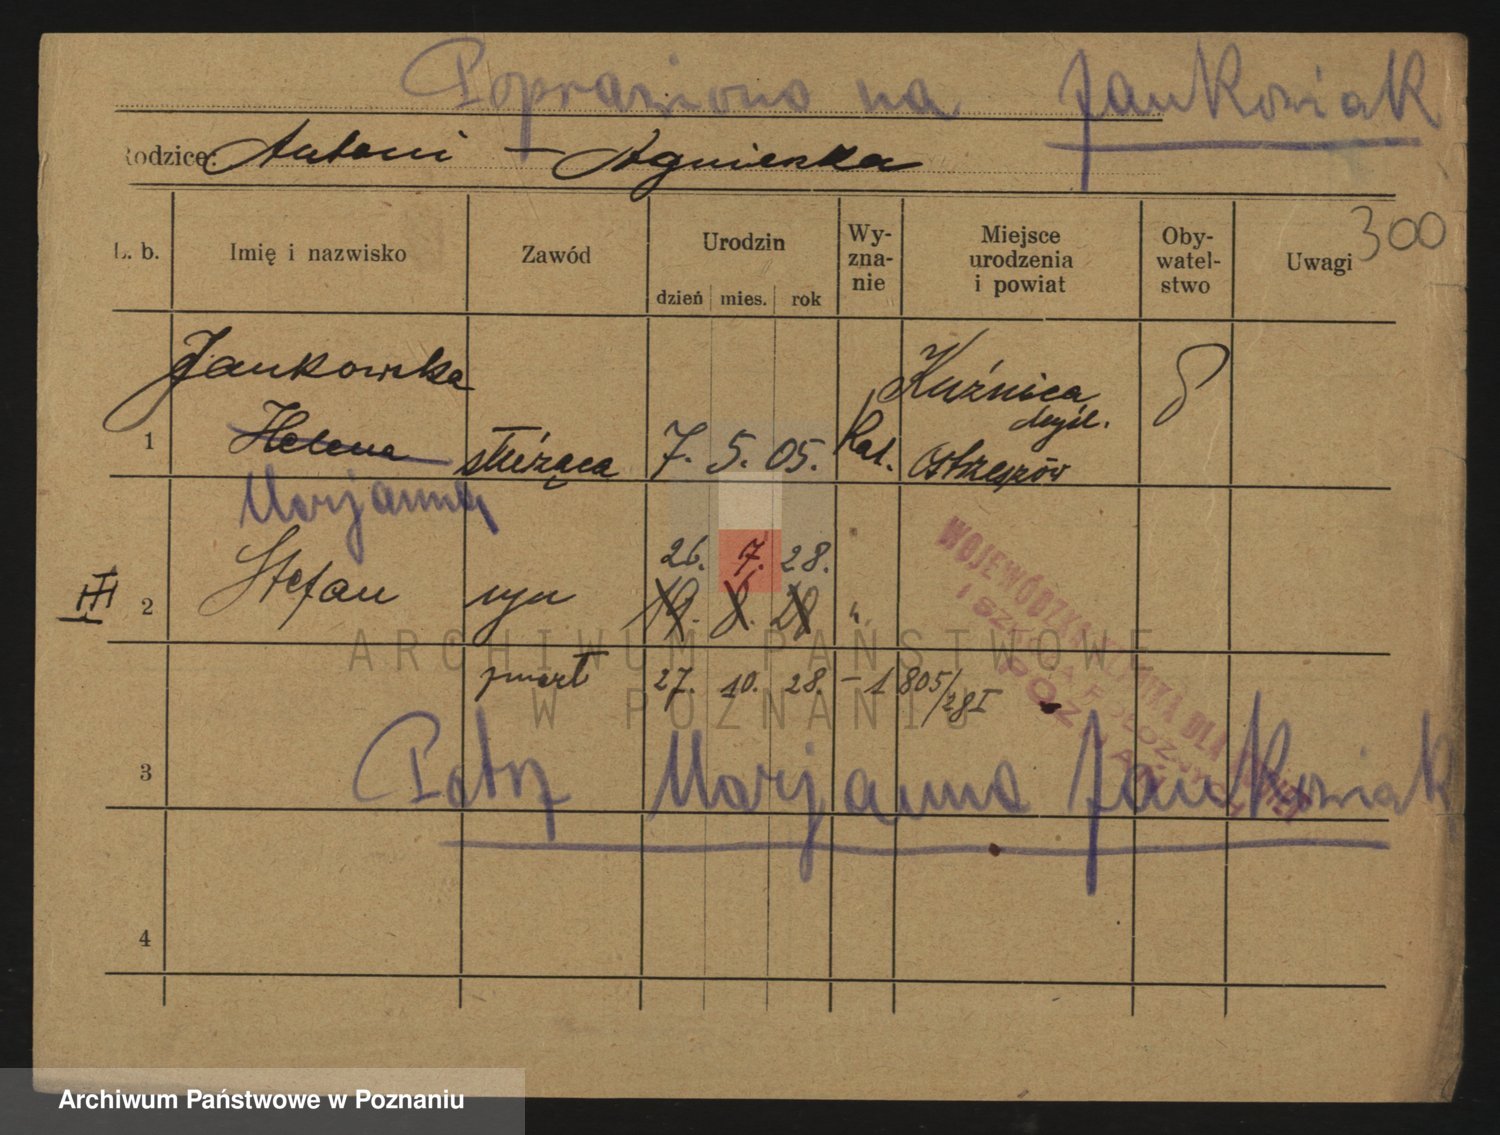 Poprawiono na Jankowiak
Rodzice: Antoni – Agnieszka
300
L. b. Imię i nazwisko Zawód Urodzin dzień mies. rok Wy-zna-nie Miejsce urodzenia i powiat Oby-watel-stwo Uwagi
Jankowska Kuźnica
1 Helena służąca 7. 5. 05. Kat. Ostrzeszów
Marjanna
26. 7. 28. "
III 2 Stefan syn 19. 8. 28 "
zmarł 27. 10. 28. – 1805/28 I
WOJEWÓDZKA KLINIKA DLA KOBIET
I SZKOŁA POŁOŻNYCH
POZNAŃ
3 Patrz Marjanna Jankowiak
4
ARCHIWUM PAŃSTWOWE
W POZNANIU
Archiwum Państwowe w Poznaniu